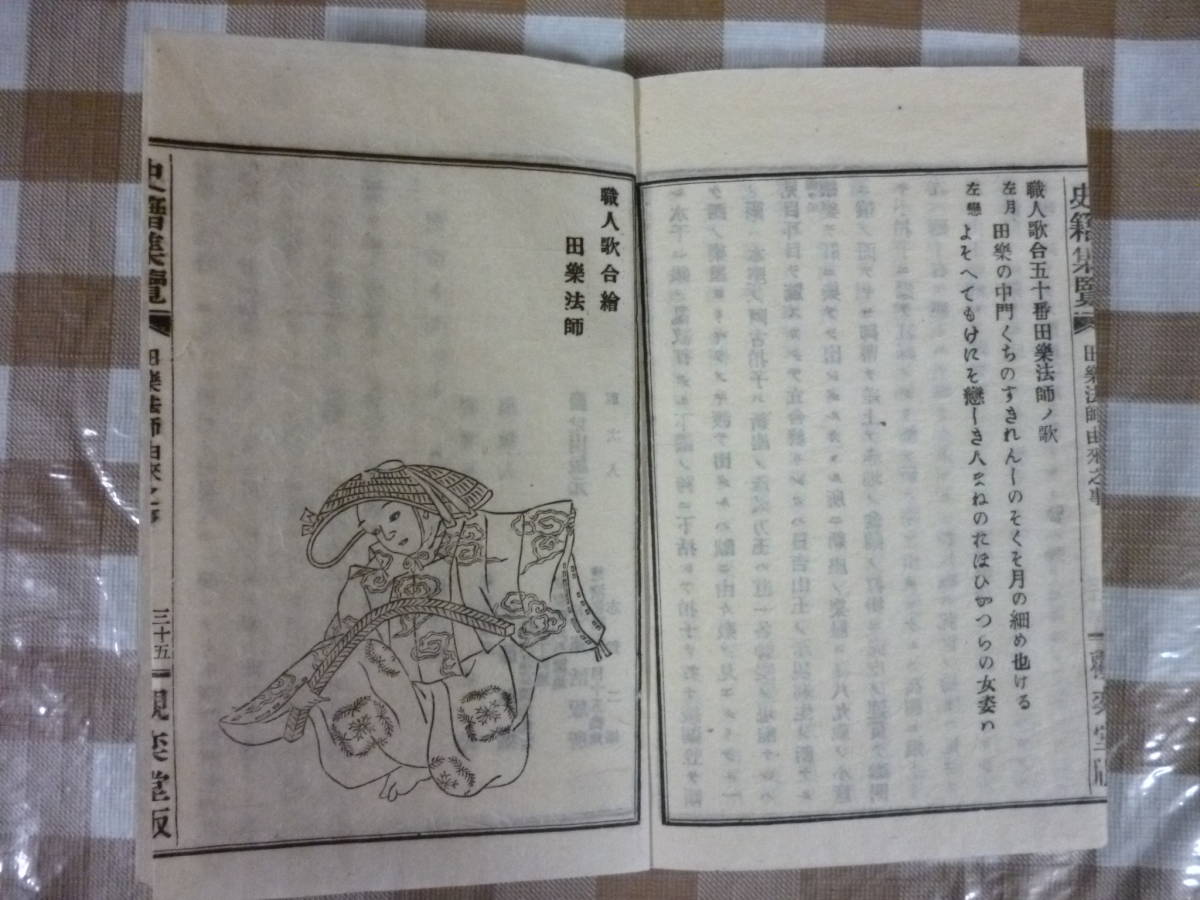 史籍集覽
田樂法師由來之事
職人歌合五十番田樂法師ノ歌
左月 田樂の中門くちのすきれんしのそくそ月の細め也ける
左戀 よそへてもけにそ戀しき人まねのれほひかつらの女姿ハ
職人歌合繪
田樂法師
史籍集覽
田樂法師由來之事
三十五
觀奕堂版